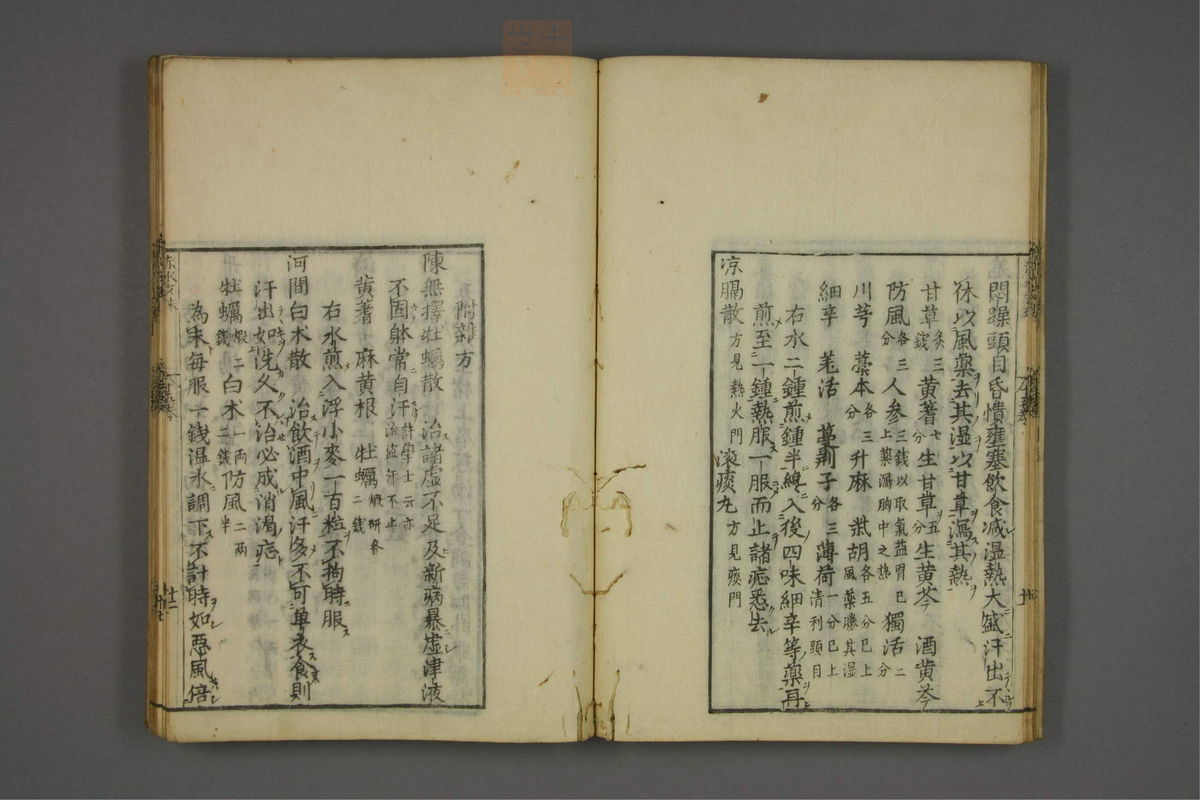 悶躁頭目昏憒壅塞飲食减湿熱大盛汗出不
休以風藥去其湿以甘草瀉其熱
甘草炙三錢黄蓍七分生甘草五分生黄芩 酒黄芩
防風各三分人参三錢以取氣益胃已上藥瀉胸中之熱獨活二分
川芎 藁本各三分升麻 柴胡各五分已上風藥勝其湿
細辛 羌活 蔓荊子各三分薄荷一分已上清利頭目
右水二鍾煎鍾半綿入後四味細辛等藥再
煎至一鍾熱服一服而止諸症悉去
凉膈散方見熱火門滚痰丸方見痰門
附雜方
陳無擇牡蠣散 治諸虚不足及新病暴虚津液
不固躰常自汗許學士云亦治盗汗不止
黄蓍 麻黄根 牡蠣煅研各二錢
右水煎入浮小麥一百粒不拘時服
河間白术散 治飲酒中風汗多不可单衣食則
汗出如洗久不治必成消渴症
牡蠣煅二錢白术一兩二錢防風二兩半
為末每服一錢温水調下不計時如惡風倍